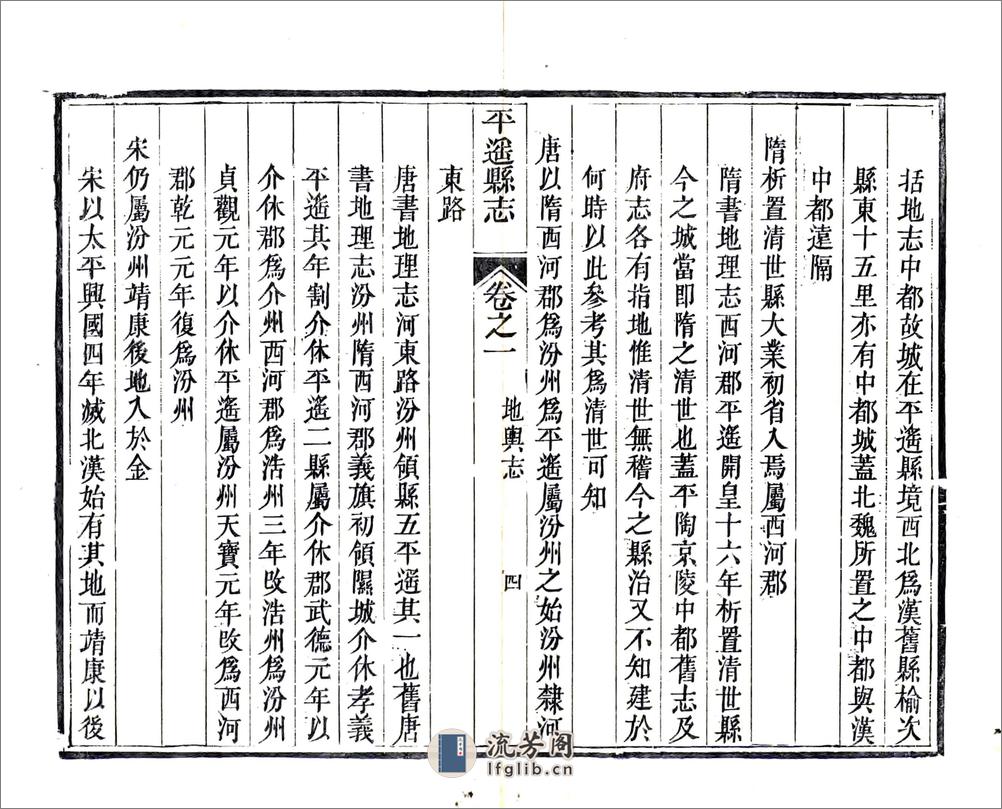 括地志中都故城在平遥縣境西北爲漢舊縣榆次
縣東十五里亦有中都城蓋北魏所置之中都與漢
中都遠隔
隋析置清世縣大業初省入焉屬西河郡
隋書地理志西河郡平遥開皇十六年析置清世縣
今之城當即隋之清世也蓋平陶京陵中都舊志及
府志各有指地惟清世無稽今之縣治又不知建於
何時以此參考其爲清世可知
唐以隋西河郡爲汾州爲平遥屬汾州之始汾州隸河
平遥縣志
卷之一
地輿志
四
東路
唐書地理志河東路汾州領縣五平遥其一也舊唐
書地理志汾州隋西河郡義旗初領隰城介休孝義
平遥其年割介休平遥二縣屬介休郡武德元年以
介休郡爲介州西河郡爲浩州三年改浩州爲汾州
貞觀元年以介休平遥屬汾州天寶元年改爲西河
郡乾元元年復爲汾州
宋仍屬汾州靖康後地入於金
宋以太平興國四年滅北漢始有其地而靖康以後
流芳阁
lfglib.cn